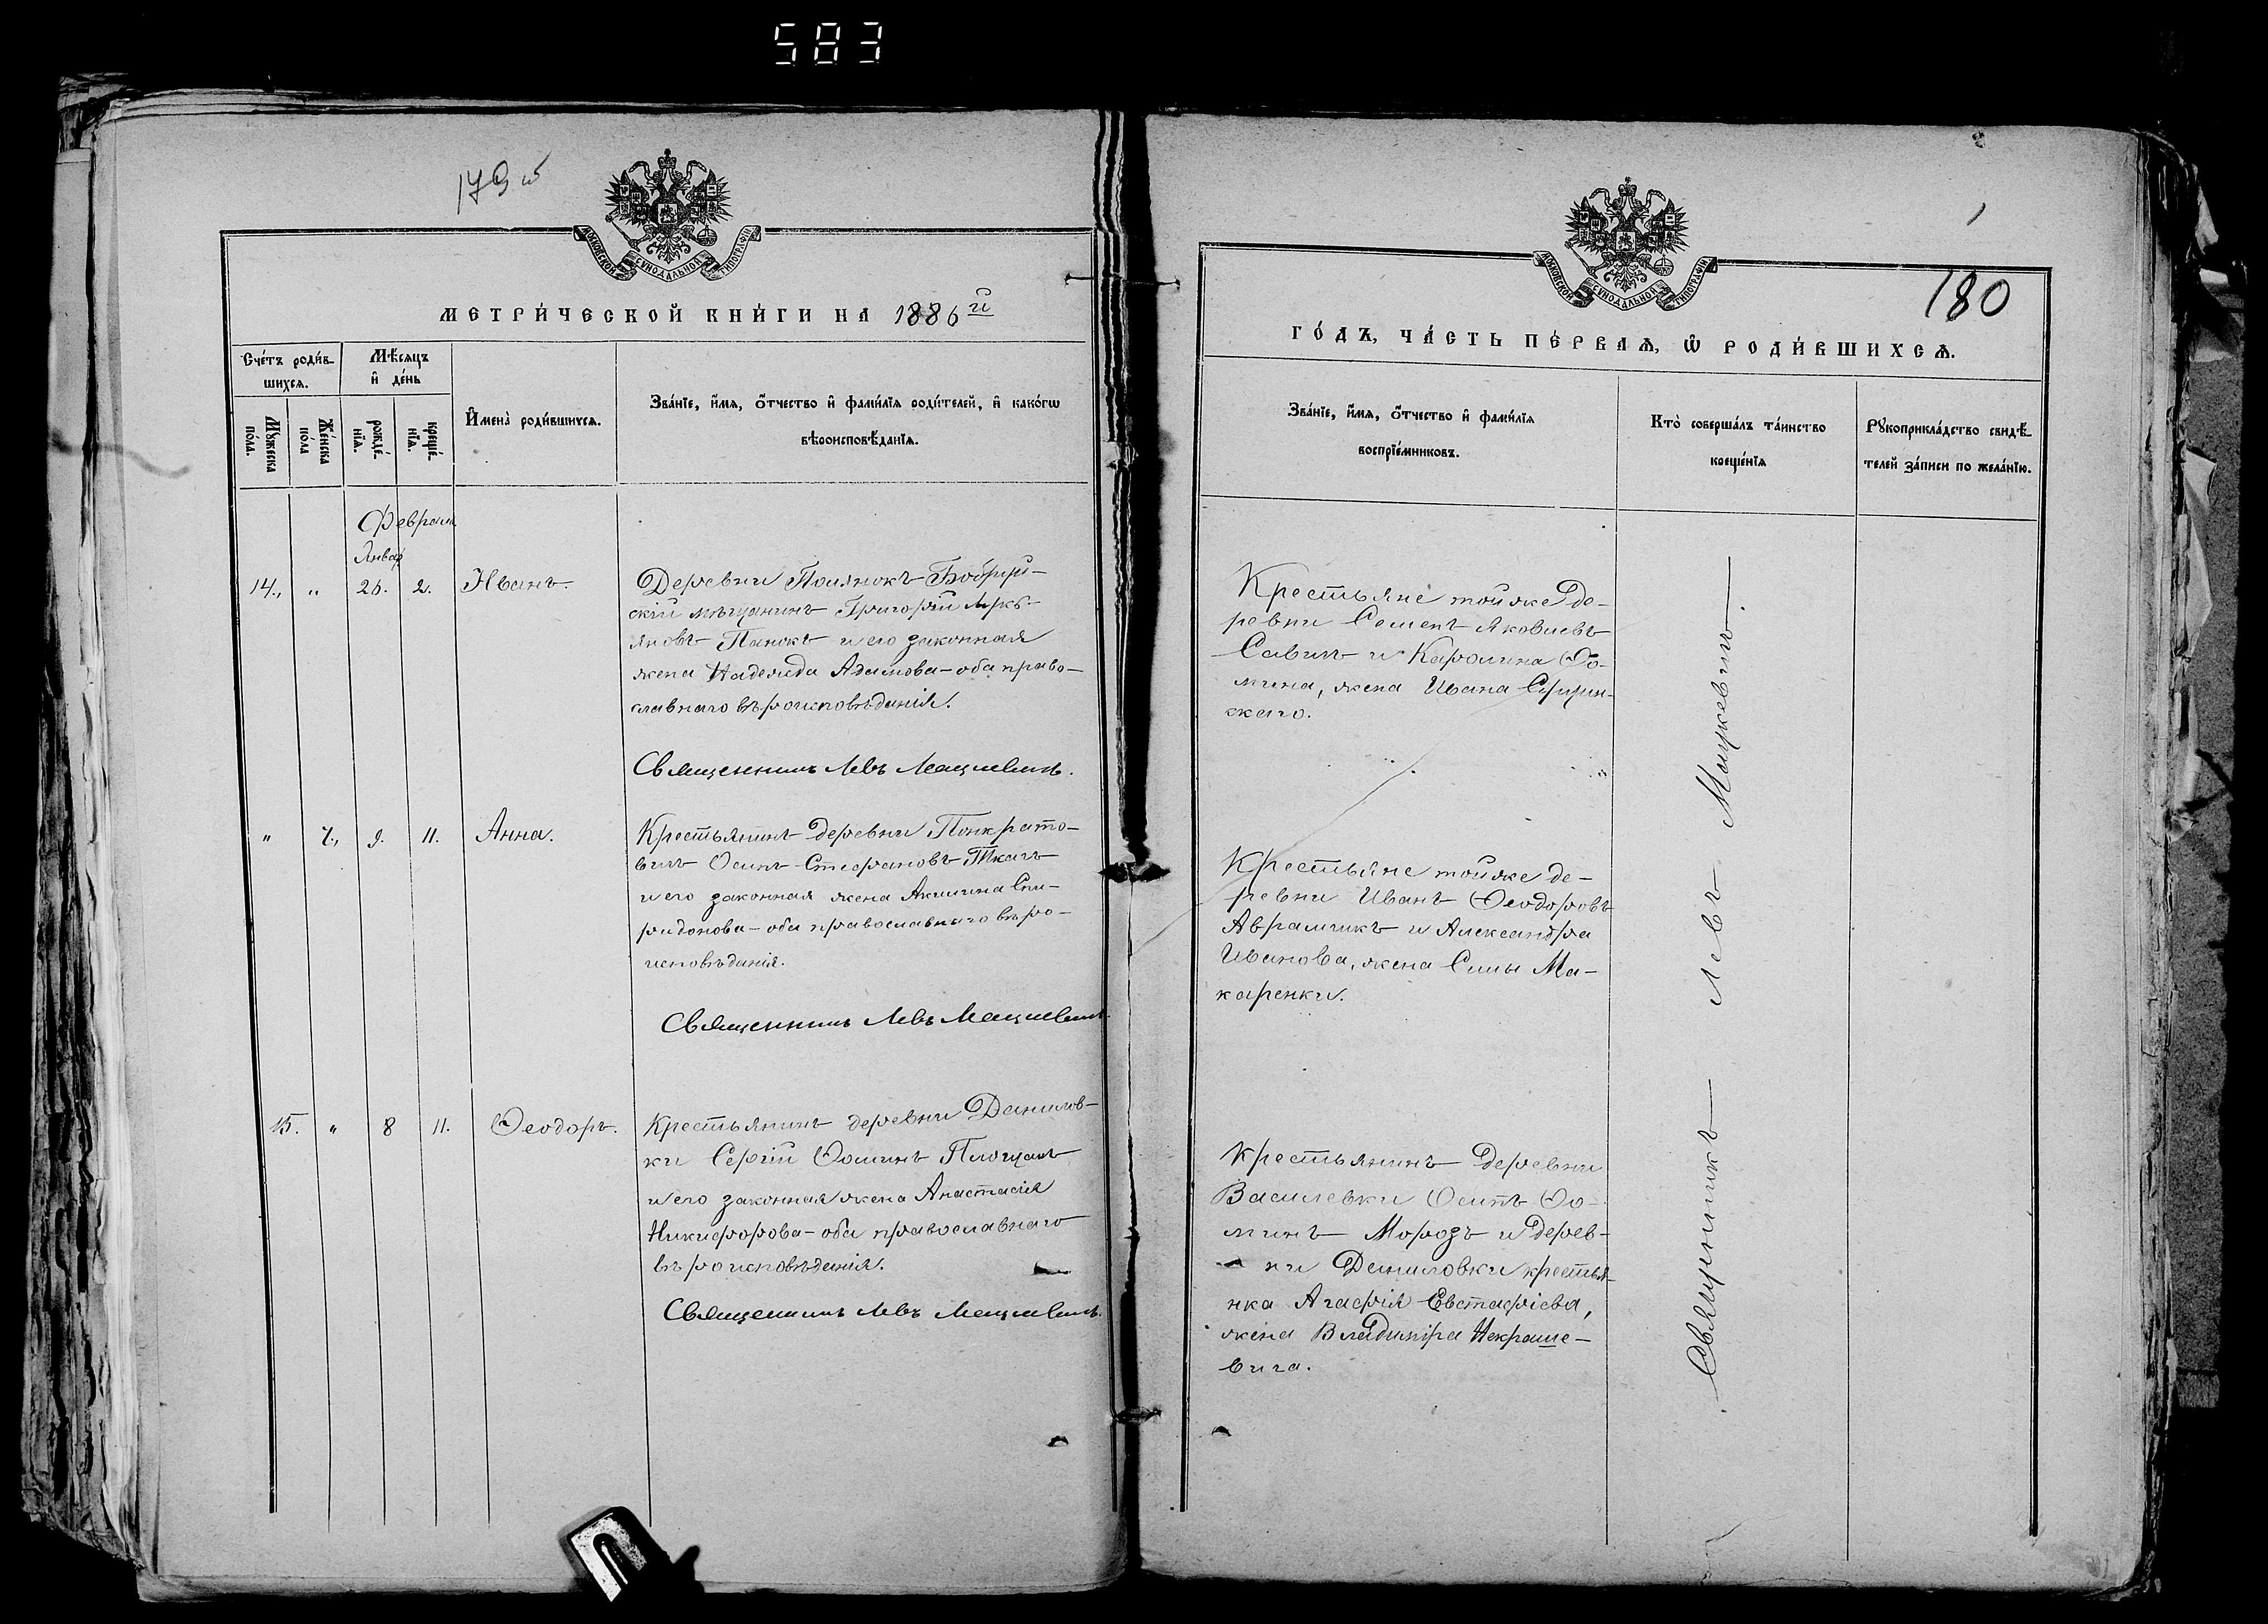 583
179 об
МОСКОВСКОЙ СѴНОДАЛЬНОЙ ТИПОГРАФІИ
МЕТРИ́ЧЕСКОЙ КНИ́ГИ НА 1886й
Сче́тъ роди́в-
шихсѧ.
Мѣ́сѧцъ
и҆ де́нь
Мꙋ́жеска
по́ла.
Же́нска
по́ла
рожде́-
нїѧ.
креще́-
нїѧ.
И҆мена̀ роди́вшихсѧ.
Зва́нїе, и҆́мѧ, ѻ҆́тчество и҆ фами́лїѧ роди́телей, и҆ како́гѡ
вѣроисповѣ́данїѧ.
Февраля
Январ
14., " 26. 2. Иванъ.
Деревни Полянокъ Бобруй-
скій мѣщанинъ Григорій Лукь-
яновъ Панокъ и его законная
жена Надежда Адамова – оба право-
славнаго вѣроисповѣданія.
Священникъ Левъ Мацкевичъ.
" 7., 9. 11. Анна.
Крестьянинъ деревни Понкрато-
вичъ Осипъ Стефановъ Ткачъ
и его законная жена Акилина Спи-
ридонова – оба православнаго вѣро-
исповѣданія.
Священникъ Левъ Мацкевичъ
15. " 8 11. Ѳеодоръ.
Крестьянинъ деревни Данилов-
ки Сергій Ѳоминъ Площакъ
и его законная жена Анастасія
Никифорова – оба православнаго
вѣроисповѣданія.
Священникъ Левъ Мацкевичъ.
180
МОСКОВСКОЙ СѴНОДАЛЬНОЙ ТИПОГРАФІИ
ГО́ДЪ, ЧА́СТЬ ПЕ́РВАѦ, Ѽ РОДИ́ВШИХСѦ.
Зва́нїе, и҆́мѧ, ѻ҆́тчество и҆ фами́лїѧ
воспрїе́мниковъ.
Кто̀ соверша́лъ та́инство
креще́нїѧ
Рꙋкоприкла́дство свидѣ́-
телей за́писи по жела́нїю.
Крестьяне той же де-
ревни Семенъ Яковлевъ
Савичъ и Каролина Ѳо-
мина, жена Ивана
скаго.
Крестьяне той же де-
ревни Иванъ Ѳеодоровъ
Аврамчикъ и Александра
Иванова, жена Силы Ма-
каренки.
Крестьянинъ деревни
Василевки Осипъ Ѳо-
минъ Морозъ и дерев-
ни Даниловки крестья-
нка Агафія Евстафіева,
жена Владиміра Некраше-
вича.
Священникъ Левъ Мацкевичъ.